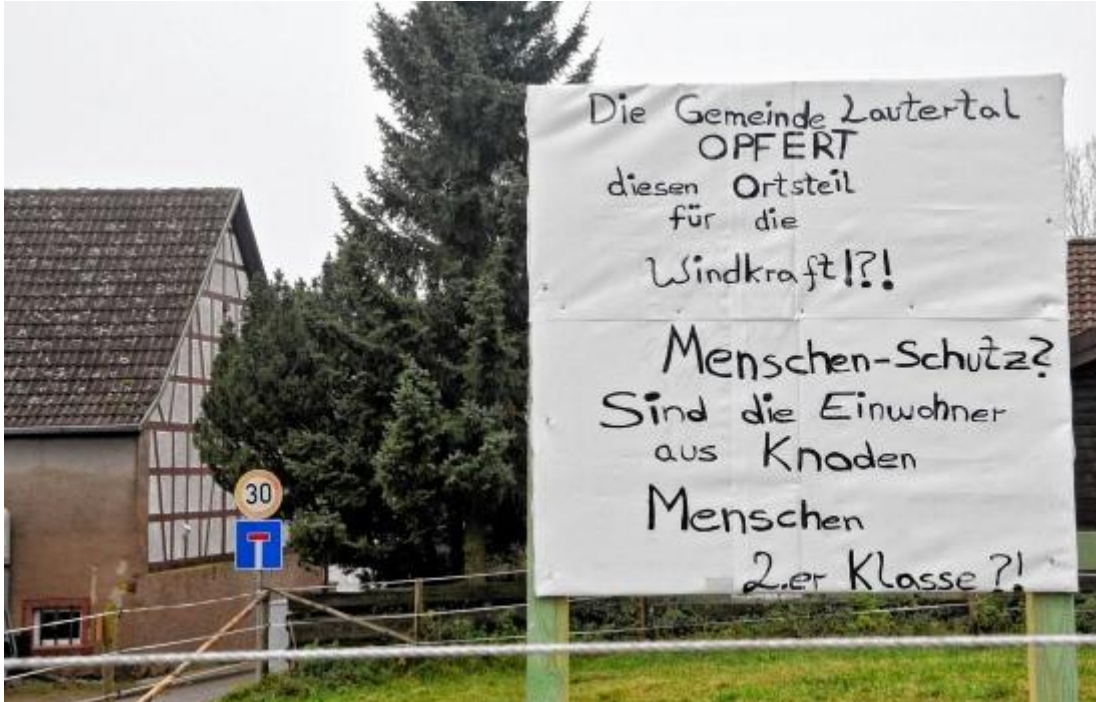 Die Gemeinde Lautertal
OPFERT
diesen Ortsteil
für die
Windkraft!?!
Menschen-Schutz?
Sind die Einwohner
aus Knoden
Menschen
2.er Klasse?!
30